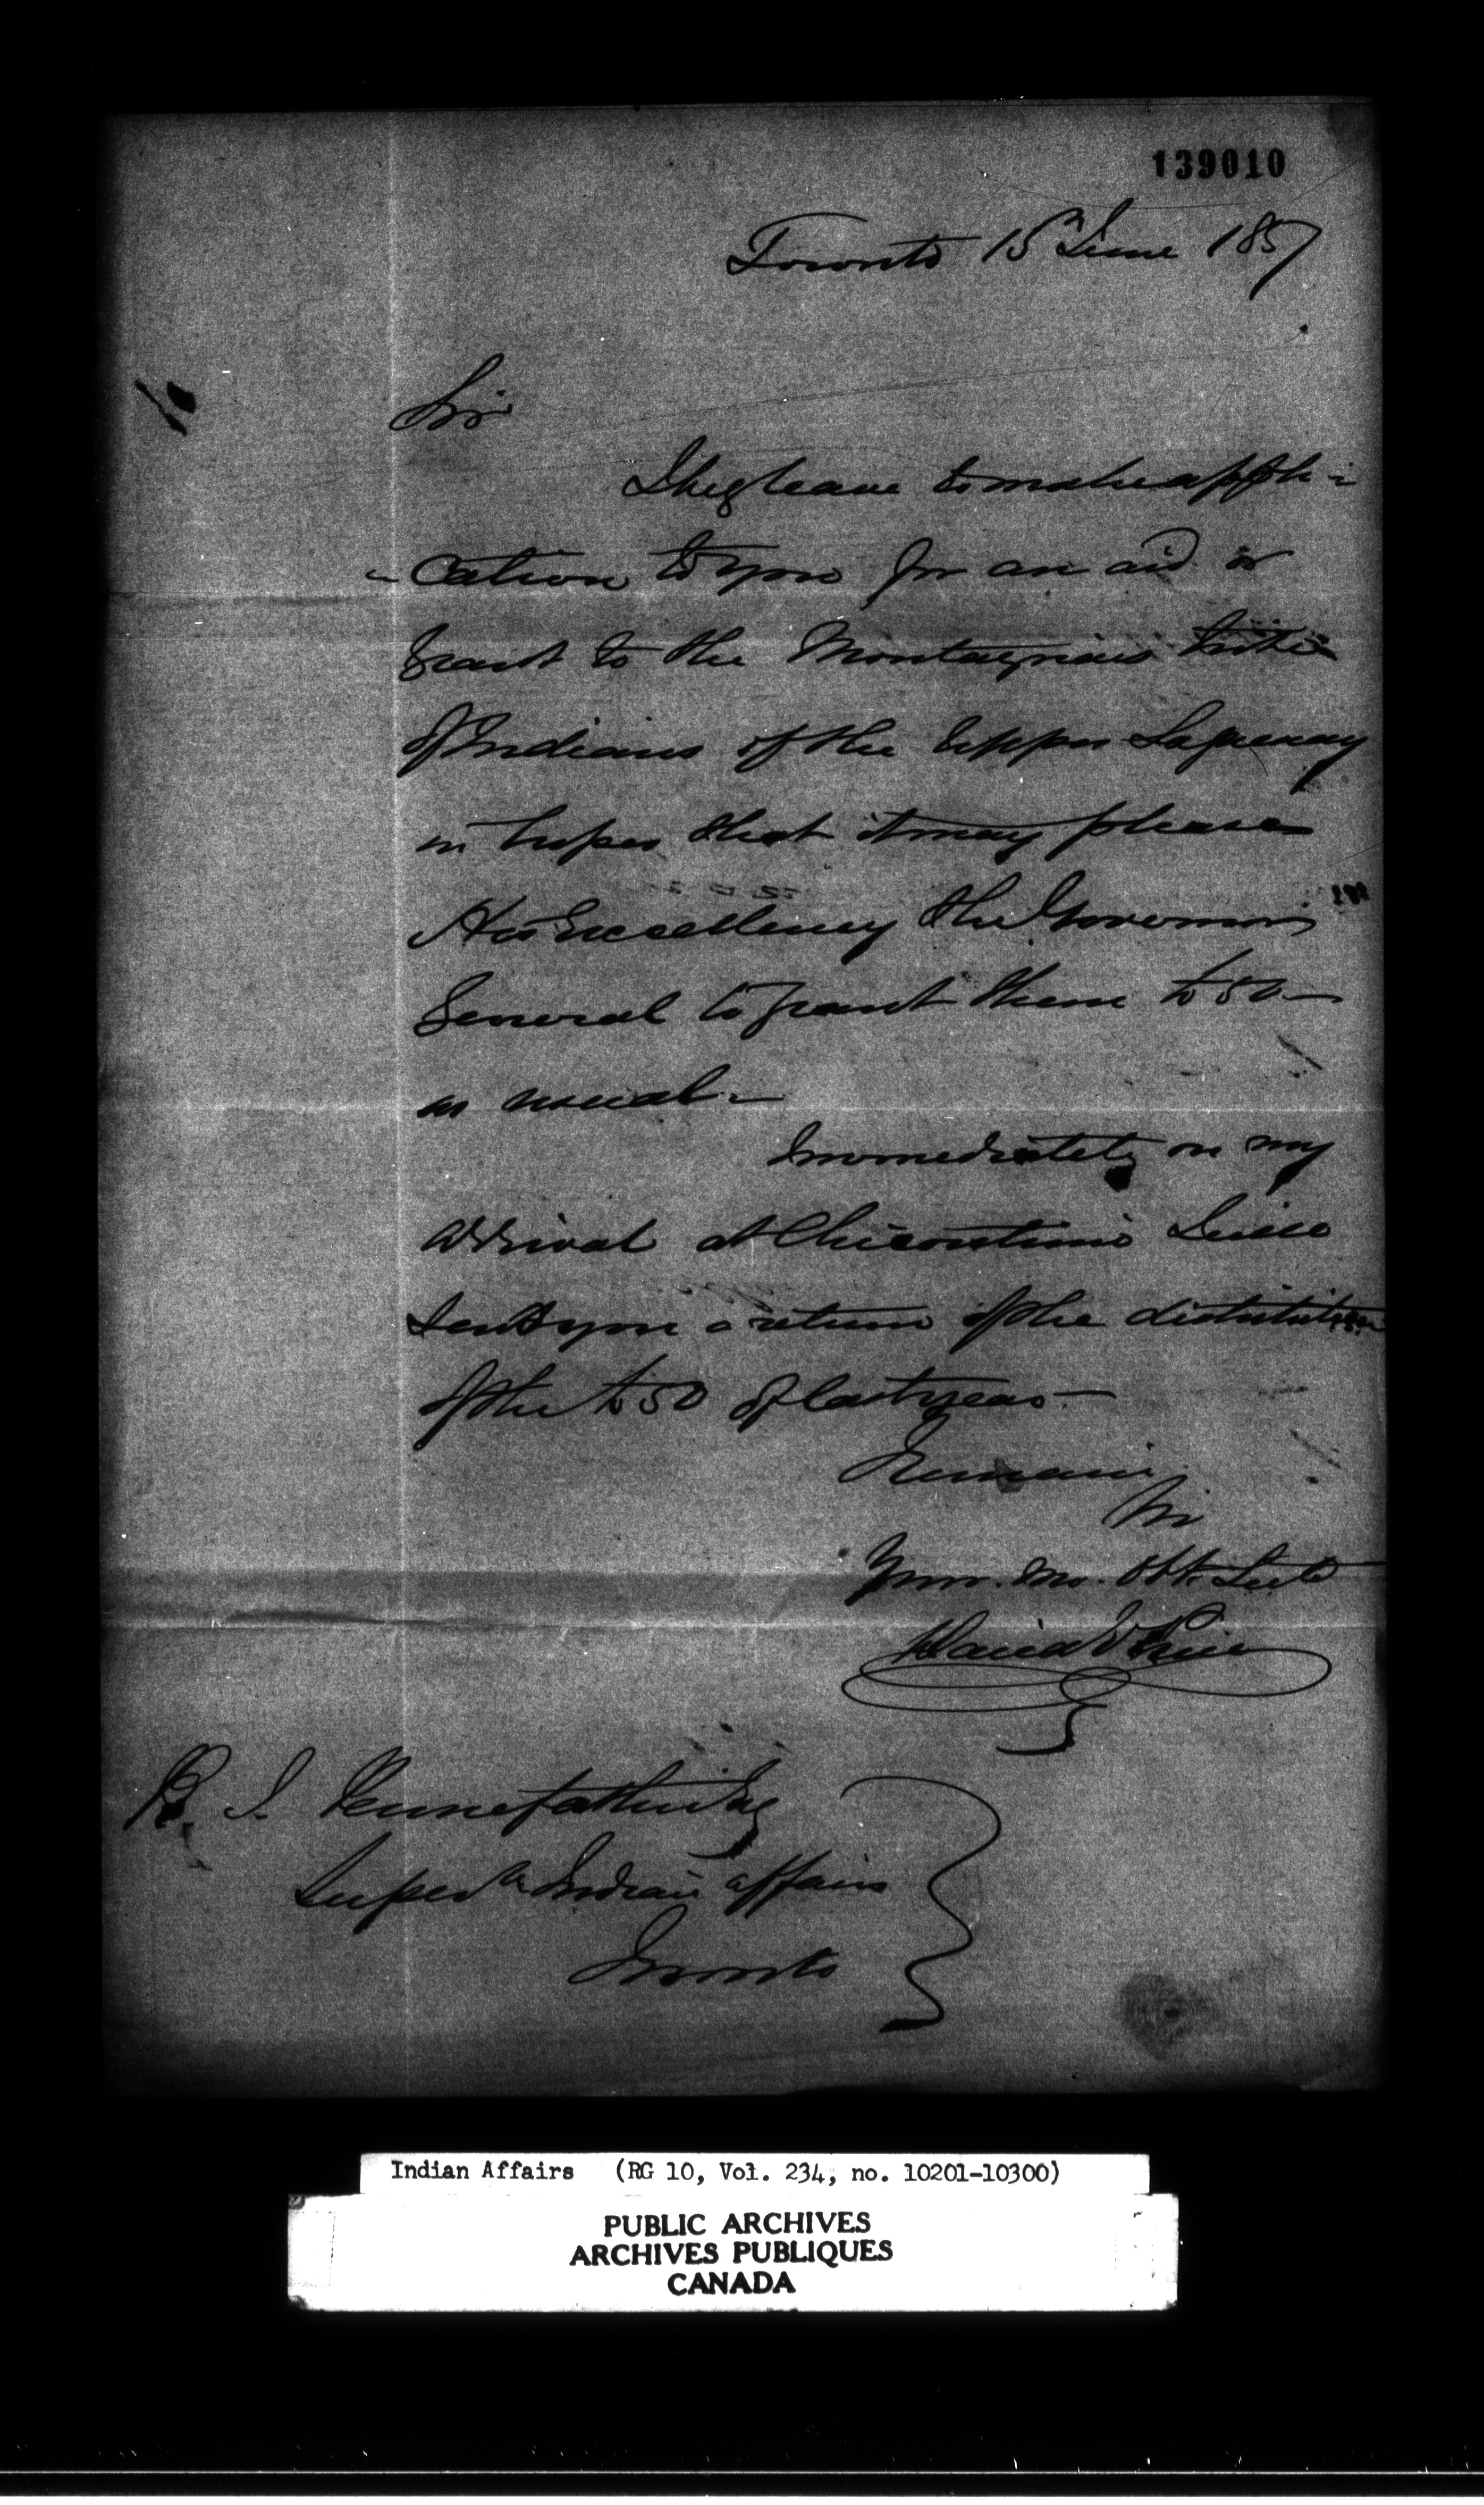 139010
Toronto 15th June 1857
Sir
I beg leave to make appli-
-cation to you for an aid or
Grant to the Montagnais tribe
of Indians of the Upper Saguenay
in hopes that it may please
His Excellency the Governor
General to grant them £50—
as usual—
Immediately on my
arrival at Chicoutimi I will
send you a return of the distribution
of the £50 of last year—
I remain
Sir
Your. Mo. Obt. Servt
David E Price
R. T. Pennefather Esq
Super Indian affairs
Toronto
Indian Affairs (RG 10, Vol. 234, no. 10201-10300)
PUBLIC ARCHIVES
ARCHIVES PUBLIQUES
CANADA